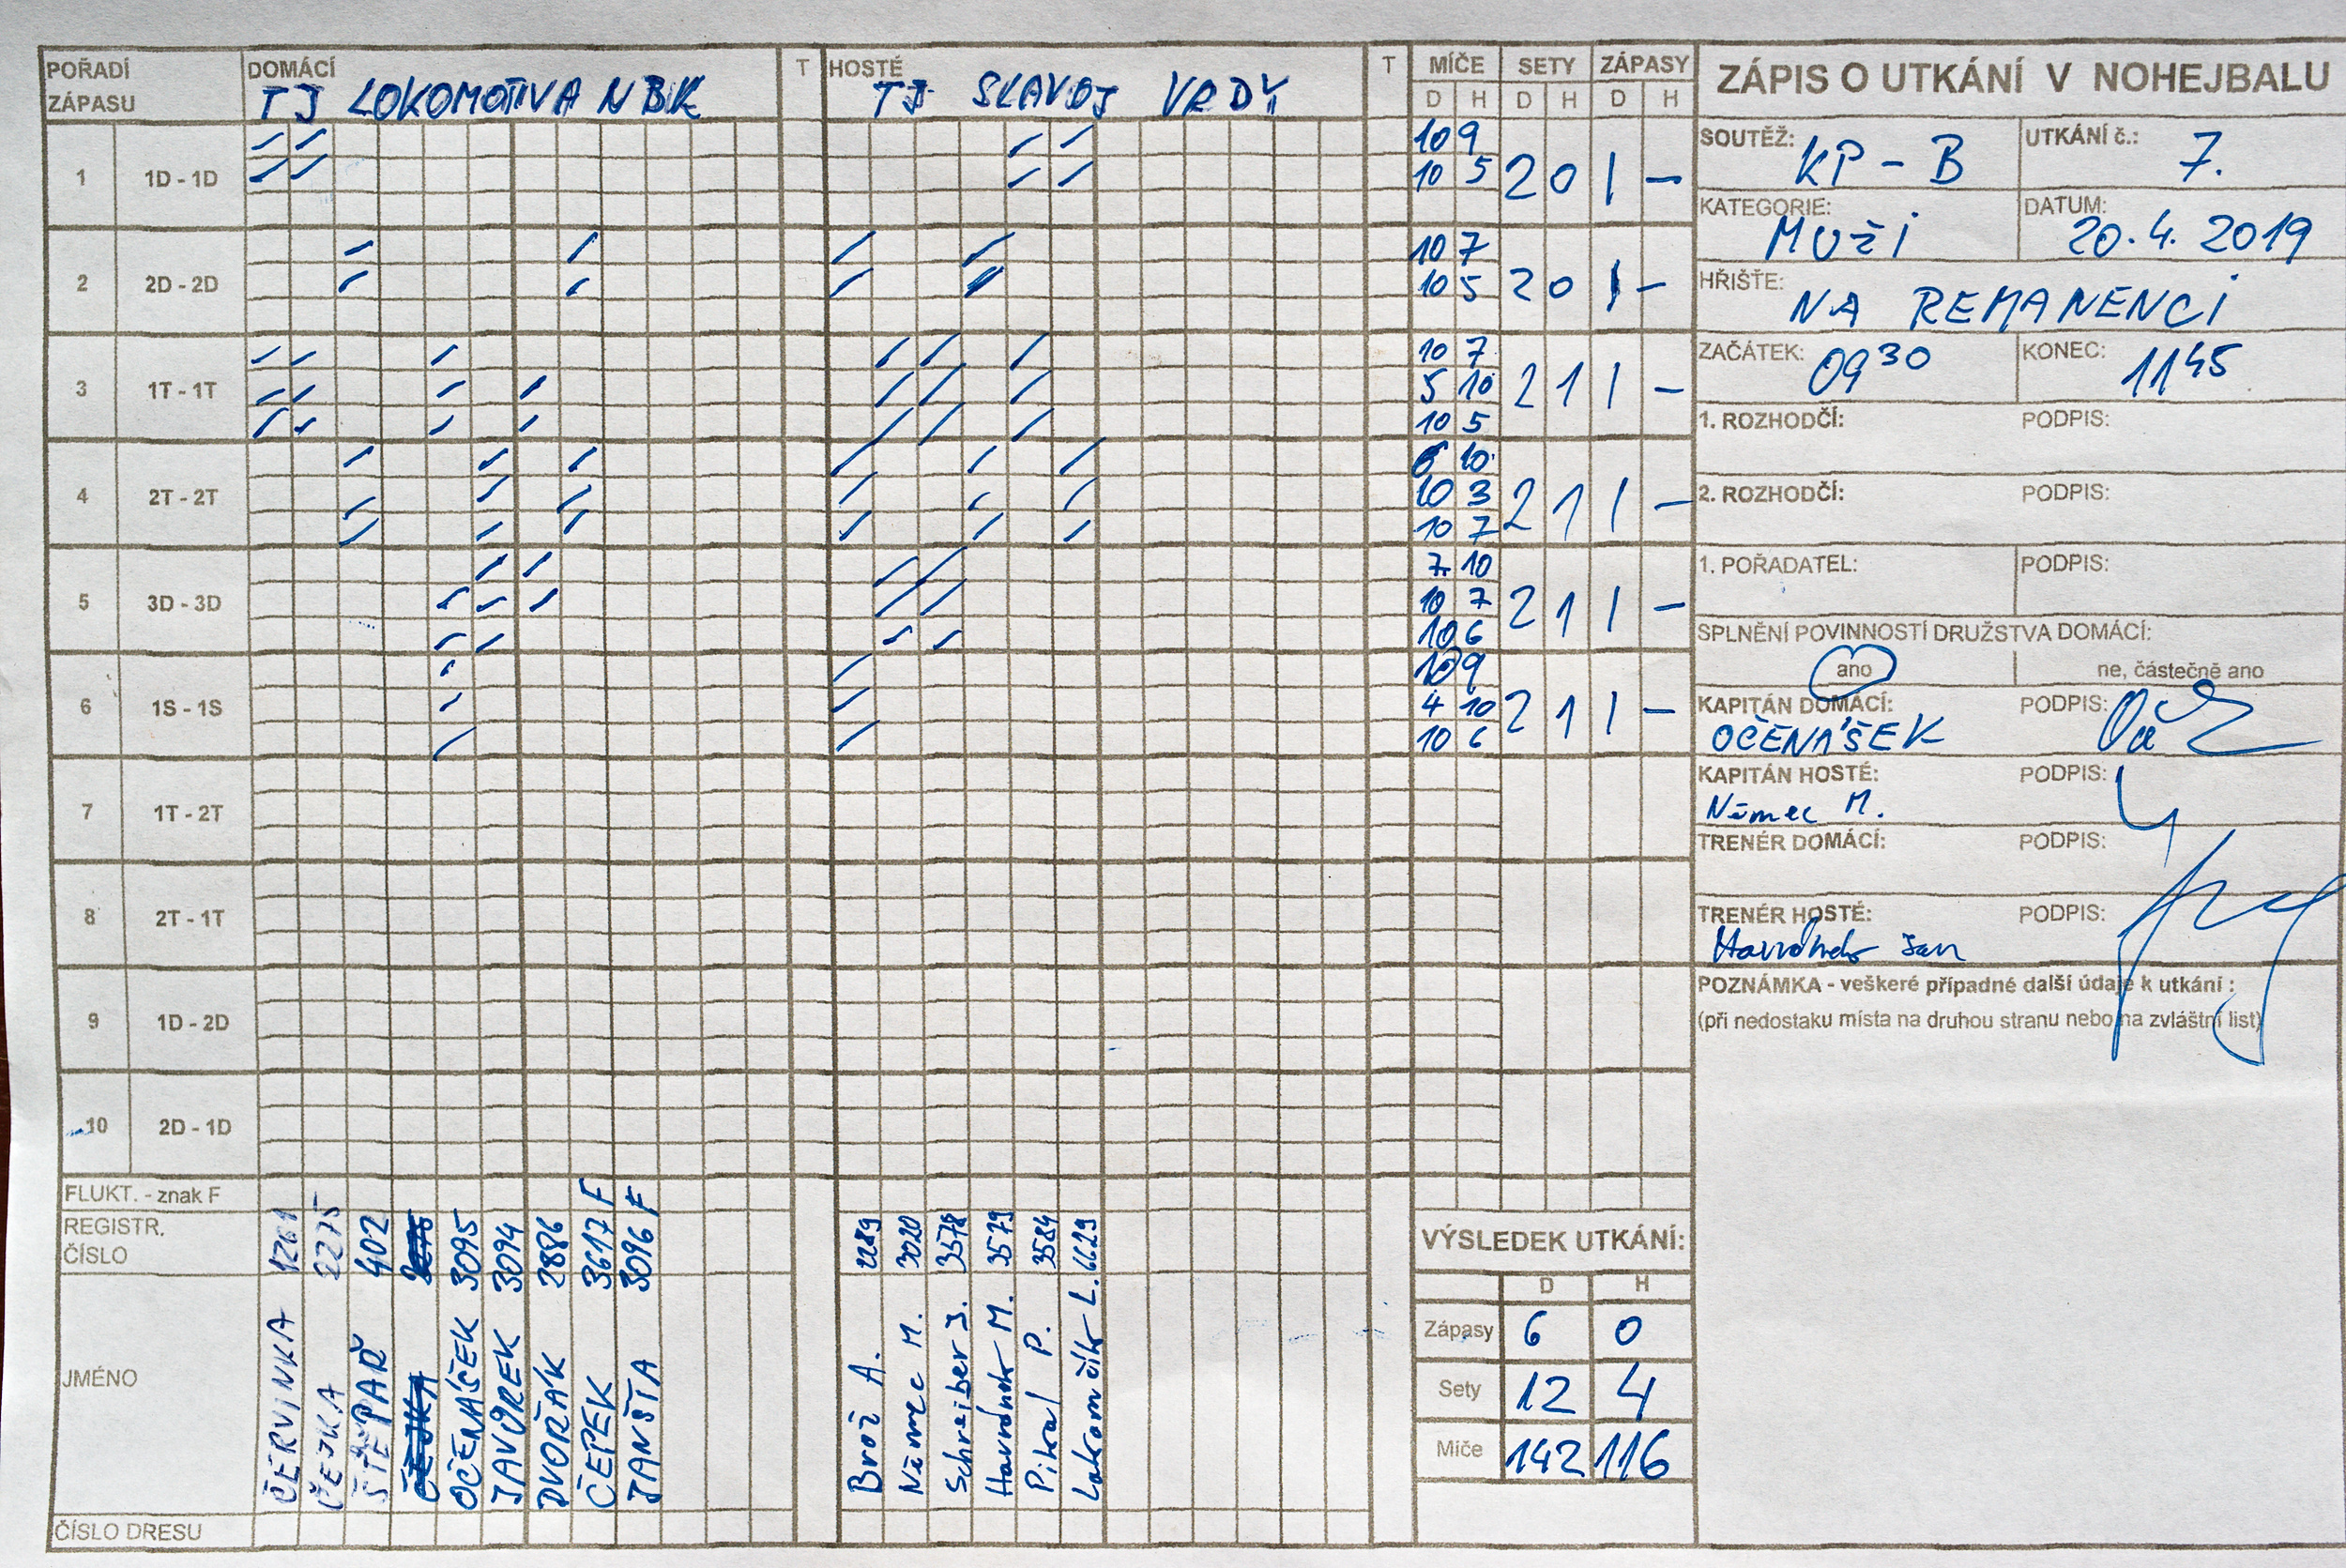 POŘADÍ ZÁPASU DOMÁCÍ T HOSTÉ T MÍČE SETY ZÁPASY
TJ LOKOMOTIVA NBK TJ SLAVOJ VRDY
D H D H D H
1 1D - 1D 10 9
10 5 2 0 1 –
2 2D - 2D 10 7
10 5 2 0 1 –
3 1T - 1T 10 7
5 10 2 1 1 –
10 5
4 2T - 2T 6 10
10 3 2 1 1 –
10 7
5 3D - 3D 7 10
10 7 2 1 1 –
10 6
6 1S - 1S 10 9
4 10 2 1 1 –
10 6
7 1T - 2T
8 2T - 1T
9 1D - 2D
10 2D - 1D
FLUKT. - znak F
REGISTR. ČÍSLO
JMÉNO
ČÍSLO DRESU
ČERVINKA
ČEJKA 2275
ŠTĚPAŘ 402
ČEJKA
OČENÁŠEK 3095
JAVŮREK 3094
DVOŘÁK 2886
ČEPEK 3617 F
JANŠTA 3096 F
Brož A. 2289
Němec M. 3020
Schreiber J. 3578
Havránek M. 3579
Pikal P. 3584
L. 6629
VÝSLEDEK UTKÁNÍ:
D H
Zápasy 6 0
Sety 12 4
Míče 142 116
ZÁPIS O UTKÁNÍ V NOHEJBALU
SOUTĚŽ: KP - B UTKÁNÍ č.: 7.
KATEGORIE: MUŽI DATUM: 20.4.2019
HŘIŠTĚ: NA REMANENCI
ZAČÁTEK: 09 30 KONEC: 11 45
1. ROZHODČÍ: PODPIS:
2. ROZHODČÍ: PODPIS:
1. POŘADATEL: PODPIS:
SPLNĚNÍ POVINNOSTÍ DRUŽSTVA DOMÁCÍ:
ano ne, částečně ano
KAPITÁN DOMÁCÍ: PODPIS:
OČENÁŠEK
KAPITÁN HOSTÉ: PODPIS:
Němec M.
TRENÉR DOMÁCÍ: PODPIS:
TRENÉR HOSTÉ: PODPIS:
Havránek Jan
POZNÁMKA - veškeré případné další údaje k utkání :
(při nedostaku místa na druhou stranu nebo na zvláštní list)